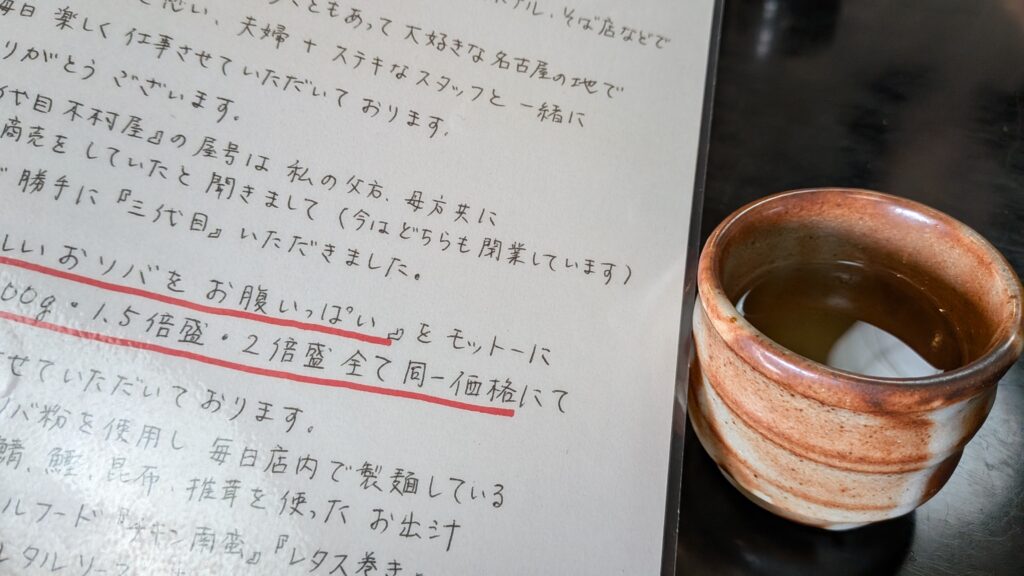 テル、そば店などで
ともあって 大好きな名古屋の地で
思い、夫婦 + ステキなスタッフと 一緒に
毎日 楽しく 仕事させていただいて おります。
りがとう ございます。
代目 木村屋』の屋号は 私の父方、母方共に
商売を していたと 聞きまして (今はどちらも閉業しています)
勝手に『三代目』いただきました。
しい おソバを お腹いっぱい』を モットーに
00g・1.5倍盛・2倍盛 全て 同一価格にて
させていただいております。
バ粉を使用し 毎日店内で製麺している
鯖、鰹、昆布、椎茸を使った お出汁
ルフード『チキン南蛮』『レタス巻き